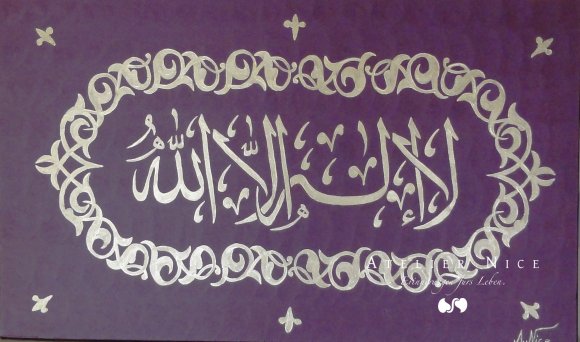 لا إله إلا الله
ATELIER NICE
Erinnerungen fürs Leben.